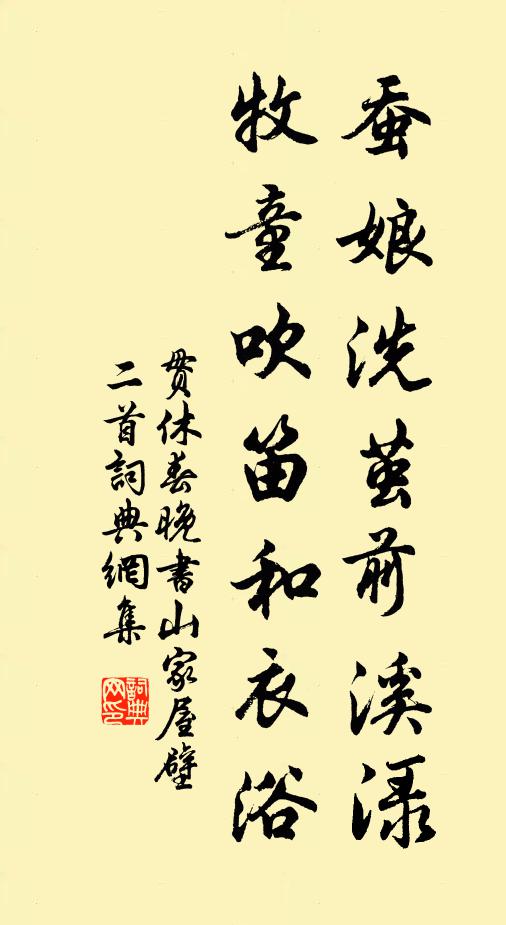 蚕娘洗茧前溪渌
牧童吹笛和衣浴
贯休春晚書山家屋壁
二首詞典網集
詞典
网印